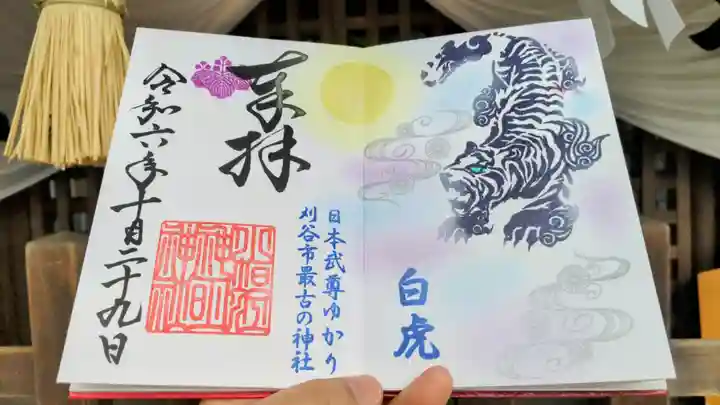 白虎
日本武尊ゆかり
刈谷市最古の神社
奉拝
令和六年十月二十九日